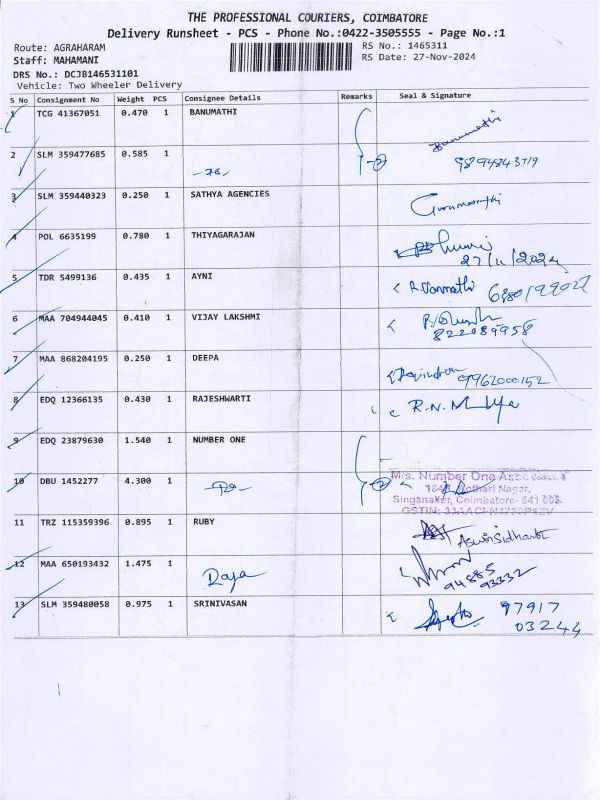 THE PROFESSIONAL COURIERS, COIMBATORE
Delivery Runsheet - PCS - Phone No.:0422-3505555 - Page No.:1
Route: AGRAHARAM
RS No.: 1465311
Staff: MAHAMANI
RS Date: 27-Nov-2024
DRS No.: DCJB146531101
Vehicle: Two Wheeler Delivery
S No Consignment No Weight PCS Consignee Details Remarks Seal & Signature
1 TCG 41367051 0.470 1 BANUMATHI
Banumathi
2 SLM 359477685 0.585 1
3 SLM 359440323 0.250 1 SATHYA AGENCIES
4 POL 6635199 0.780 1 THIYAGARAJAN
27/11/2024
5 TDR 5499136 0.435 1 AYNI
6 MAA 704944045 0.410 1 VIJAY LAKSHMI
7 MAA 868204195 0.250 1 DEEPA
9962000152
8 EDQ 12366135 0.430 1 RAJESHWARTI
R.N.
9 EDQ 23879630 1.540 1 NUMBER ONE
10 DBU 1452277 4.300 1
M/s. Number One
Kothari Nagar,
Singanallur, Coimbatore- 641 005
GSTIN:
11 TRZ 115359396 0.895 1 RUBY
12 MAA 650193432 1.475 1 Raja
94885
93332
13 SLM 359480058 0.975 1 SRINIVASAN
97917
03244